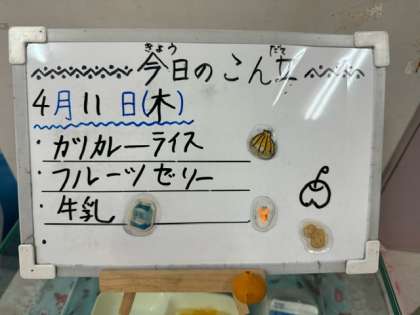 きょう だて
今日のこん立
4月11日(木)
・ガリカレーライス
・フルーツゼリー
・牛乳
・